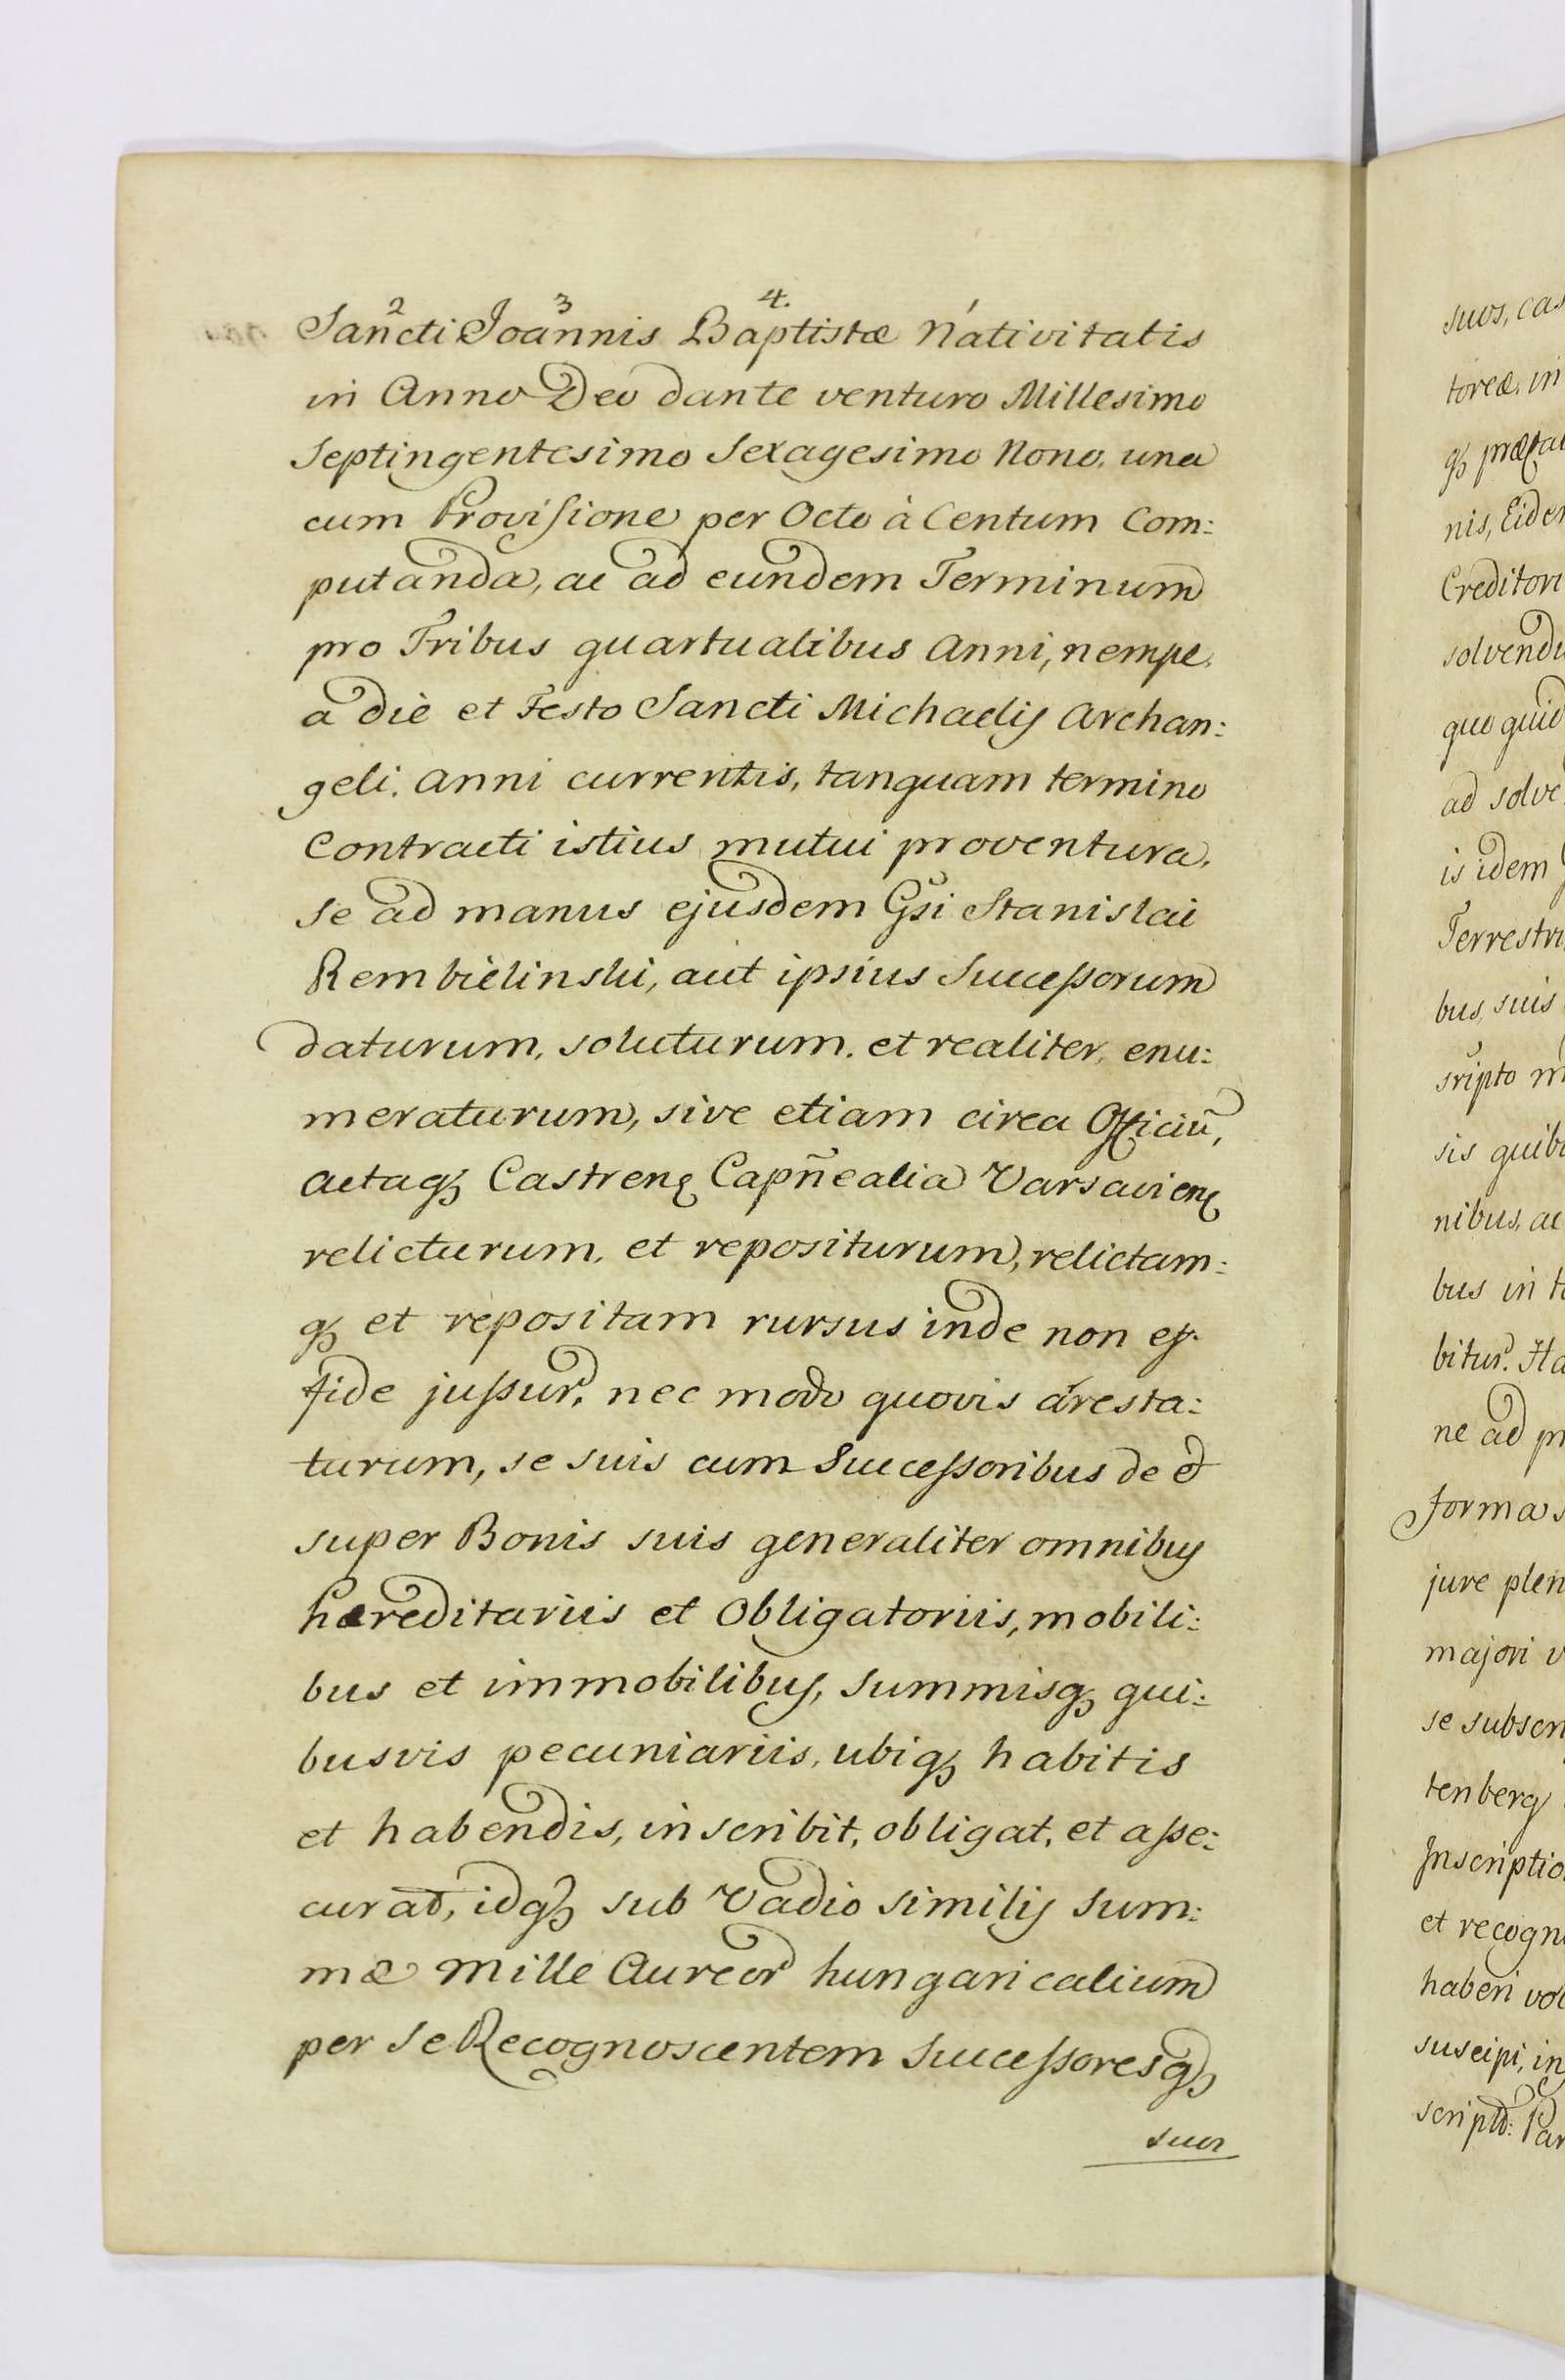 2 3 4. 1
Sancti Joannis Baptistæ Nativitatis
in Anno Deo dante venturo Millesimo
Septingentesimo Sexagesimo Nono, una
cum Provisione per Octo à Centum Com:
putanda, ac ad eundem Terminum
pro Tribus quartualibus Anni, nempe
a die et Festo Sancti Michaelis Archan:
geli. anni currentis, tanquam termino
Contracti istius mutui proventura,
se ad manus ejusdem Gsi Stanislai
Rembielinski, aut ipsius Successorum
daturum, soluturum, et realiter, enu:
meraturum, sive etiam circa Officiū,
actaqꝫ Castren Capn̄ealia Varsavien
relicturum, et repositurum, relictam:
qꝫ et repositam rursus inde non
fide jussur, nec modo quovis aresta:
turum, se suis cum Successoribus de et
super Bonis suis generaliter omnibus
hæreditariis et Obligatoriis, mobili:
bus et immobilibus, Summisqꝫ qui:
busvis pecuniariis, ubiqꝫ habitis
et habendis, inscribit, obligat, et asse:
curat, idqꝫ sub Vadio similis Sum:
mæ Mille Aureor hungaricalium
per se Recognoscentem Successoresqꝫ
suos
suos, cas
toreæ, in
qꝫ
nis, Eidem
Creditori
solvend
quo quid
ad solve
is idem
Terrestri
bus, suis
sripto
sis quib
nibus, ac
bus in
bitur. Ha
ne ad
forma
jure plen
majori v
se subscri
tenberg
Inscriptio
et recogn
haberi
suscipi, in
script: Par